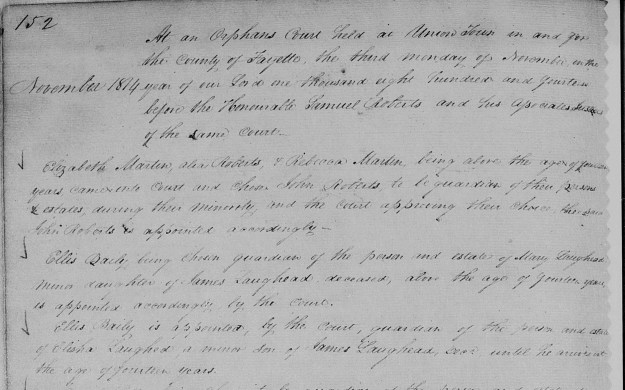 152
At an Orphans Court held at Union Town in and for
the County of Fayette, the third monday of November in the
November 1814 year of our Lord one thousand eight hundred and fourteen
before the Honourable Samuel Roberts and his Associates
of the same Court.
Elizabeth Martin, alia Roberts, & Rebecca Martin being above the age of fourteen
years, came into Court and chose John Roberts, to be guardian of their persons
& estates, during their minority, and the court approving their choice, the said
John Roberts is appointed accordingly
Ellis Baily being chosen guardian of the person and estates of Mary Laughead
minor daughter of James Laughead deceased, above the age of fourteen years,
is appointed accordingly by the court.
Ellis Baily is appointed, by the court, guardian of the person and estate
of Elisha Laughead a minor son of James Laughead, until he arrives at
the age of fourteen years.
guardian of the person and estate